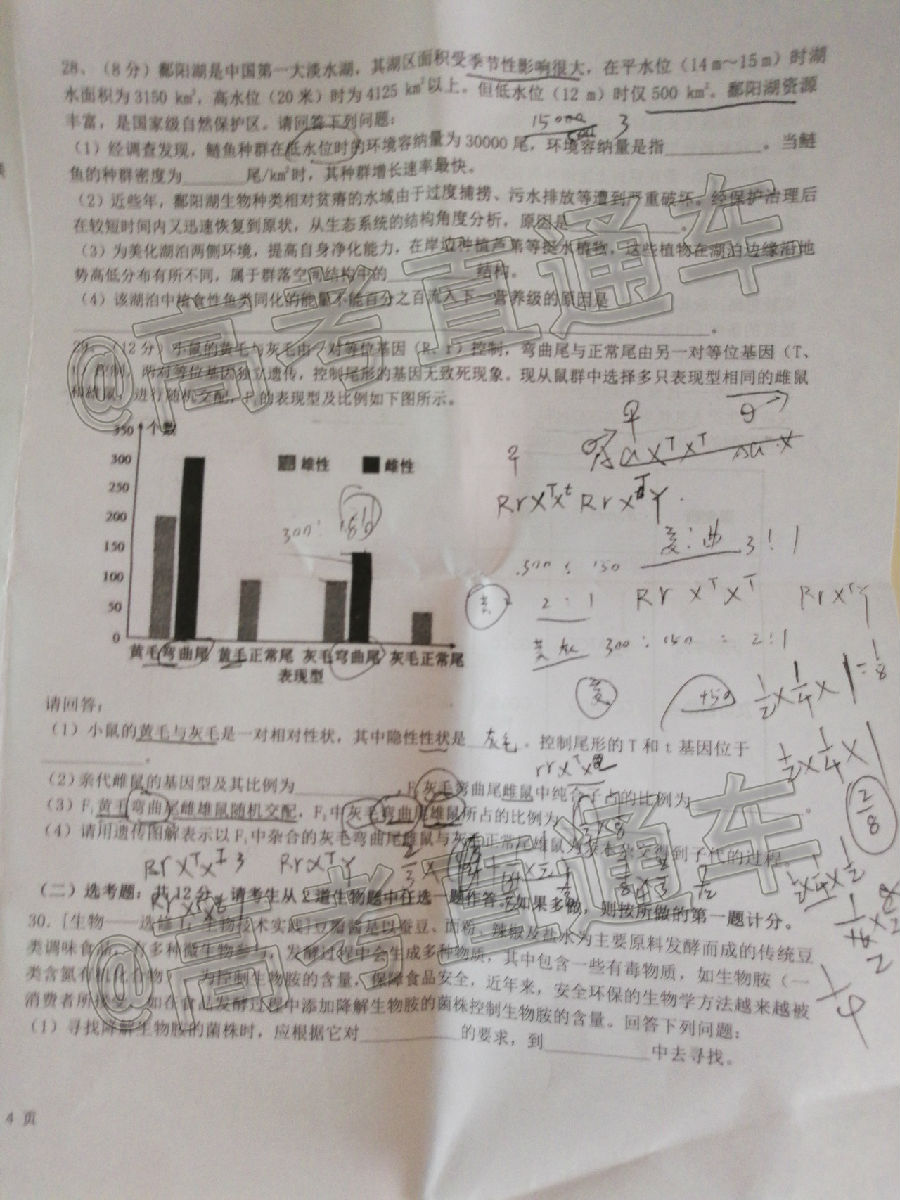 28、（8分）鄱阳湖是中国第一大淡水湖，其湖区面积受季节性影响很大，在平水位（14 m～15 m）时湖
水面积为3150 km²，高水位（20米）时为4125 km²以上。但低水位（12 m）时仅500 km²。鄱阳湖资源
丰富，是国家级自然保护区。请回答下列问题：
15000 3
（1）经调查发现，鲢鱼种群在低水位时的环境容纳量为30000尾，环境容纳量是指__________。当鲢
鱼的种群密度为______尾/km²时，其种群增长速率最快。
（2）近些年，鄱阳湖生物种类相对贫瘠的水域由于过度捕捞、污水排放等遭到严重破坏。经保护治理后
在较短时间内又迅速恢复到原状，从生态系统的结构角度分析，原因是__________。
（3）为美化湖泊两侧环境，提高自身净化能力，在岸边种植芦苇等挺水植物，这些植物在湖泊边缘沿地
势高低分布有所不同，属于群落空间结构中的________结构。
（4）该湖泊中植食性鱼类同化的能量不能百分之百流入下一营养级的原因是
__________。
29、（12分）小鼠的黄毛与灰毛由一对等位基因（R、r）控制，弯曲尾与正常尾由另一对等位基因（T、
控制，两对等位基因独立遗传，控制尾形的基因无致死现象。现从鼠群中选择多只表现型相同的雌鼠
和雄鼠，进行随机交配，F₁的表现型及比例如下图所示。
350 个数
300
250
200
150
100
50
0
雄性 雌性
黄毛弯曲尾 黄毛正常尾 灰毛弯曲尾 灰毛正常尾
表现型
300：
♀
RrXᵀXᵗ RrXᵀY
3：1
300：150
2：1 RrXᵀXᵀ RrXᵀY
300：150 = 2：1
1/2×1/4×1=1/8
1/2×1/4×1
2/8
1/4
请回答：
（1）小鼠的黄毛与灰毛是一对相对性状，其中隐性性状是 灰毛 。控制尾形的T和t基因位于
__________。
（2）亲代雌鼠的基因型及其比例为__________，F₁灰毛弯曲尾雌鼠中纯合子占的比例为
（3）F₁黄毛弯曲尾雌雄鼠随机交配，F₂中灰毛弯曲尾雄鼠所占的比例为
（4）请用遗传图解表示以F₁中杂合的灰毛弯曲尾雌鼠与灰毛正常尾雄鼠为亲本杂交得到子代的过程。
RrXᵀXᵀ 3 RrXᵀY
（二）选考题：共12分。请考生从2道生物题中任选一题作答。如果多做，则按所做的第一题计分。
30．[生物——选修1：生物技术实践]豆瓣酱是以蚕豆、面粉、辣椒及盐水为主要原料发酵而成的传统豆
类调味食品。有多种微生物参与，发酵过程中会生成多种物质，其中包含一些有毒物质，如生物胺（一
类含氮有机化合物）。为控制生物胺的含量，保障食品安全，近年来，安全环保的生物学方法越来越被
消费者所接受，如在食品发酵过程中添加降解生物胺的菌株控制生物胺的含量。回答下列问题：
（1）寻找降解生物胺的菌株时，应根据它对__________的要求，到__________中去寻找。
4 页
@高考直通车
@高考直通车
@高考直通车